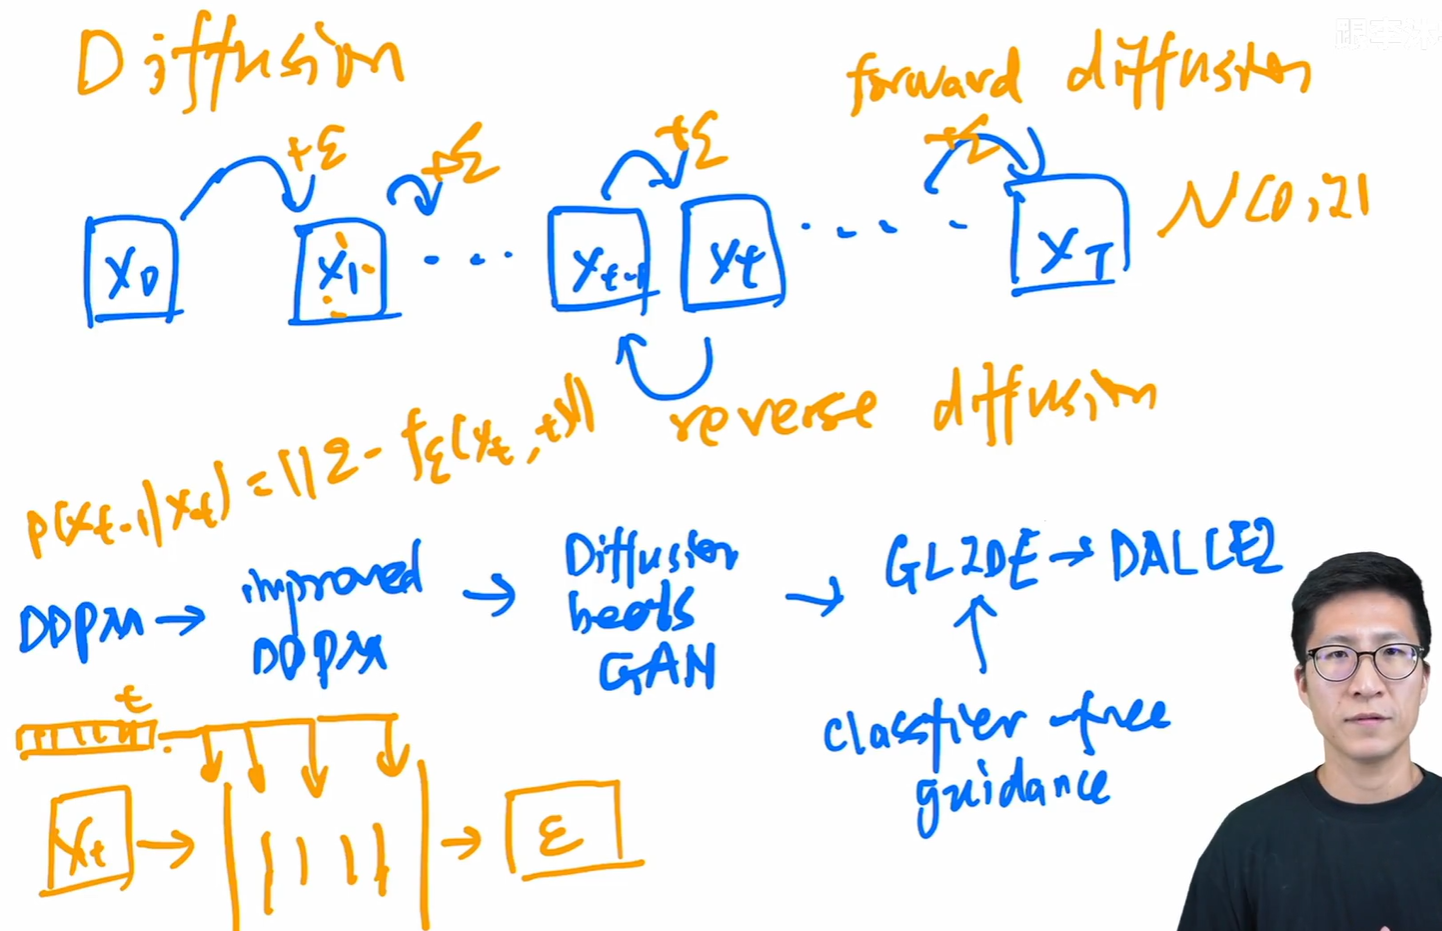 Diffusion
forward diffusion
+ε +ε +ε +ε
X₀ X₁ ... Xₜ₋₁ Xₜ .... X_T N(0,I)
reverse diffusion
p(xₜ₋₁|xₜ) = ||ε - fε(xₜ,t)||
DDPM → improved DDPM → Diffusion beats GAN → GLIDE → DALLE2
classfier-free
guidance
t
Xₜ → → ε